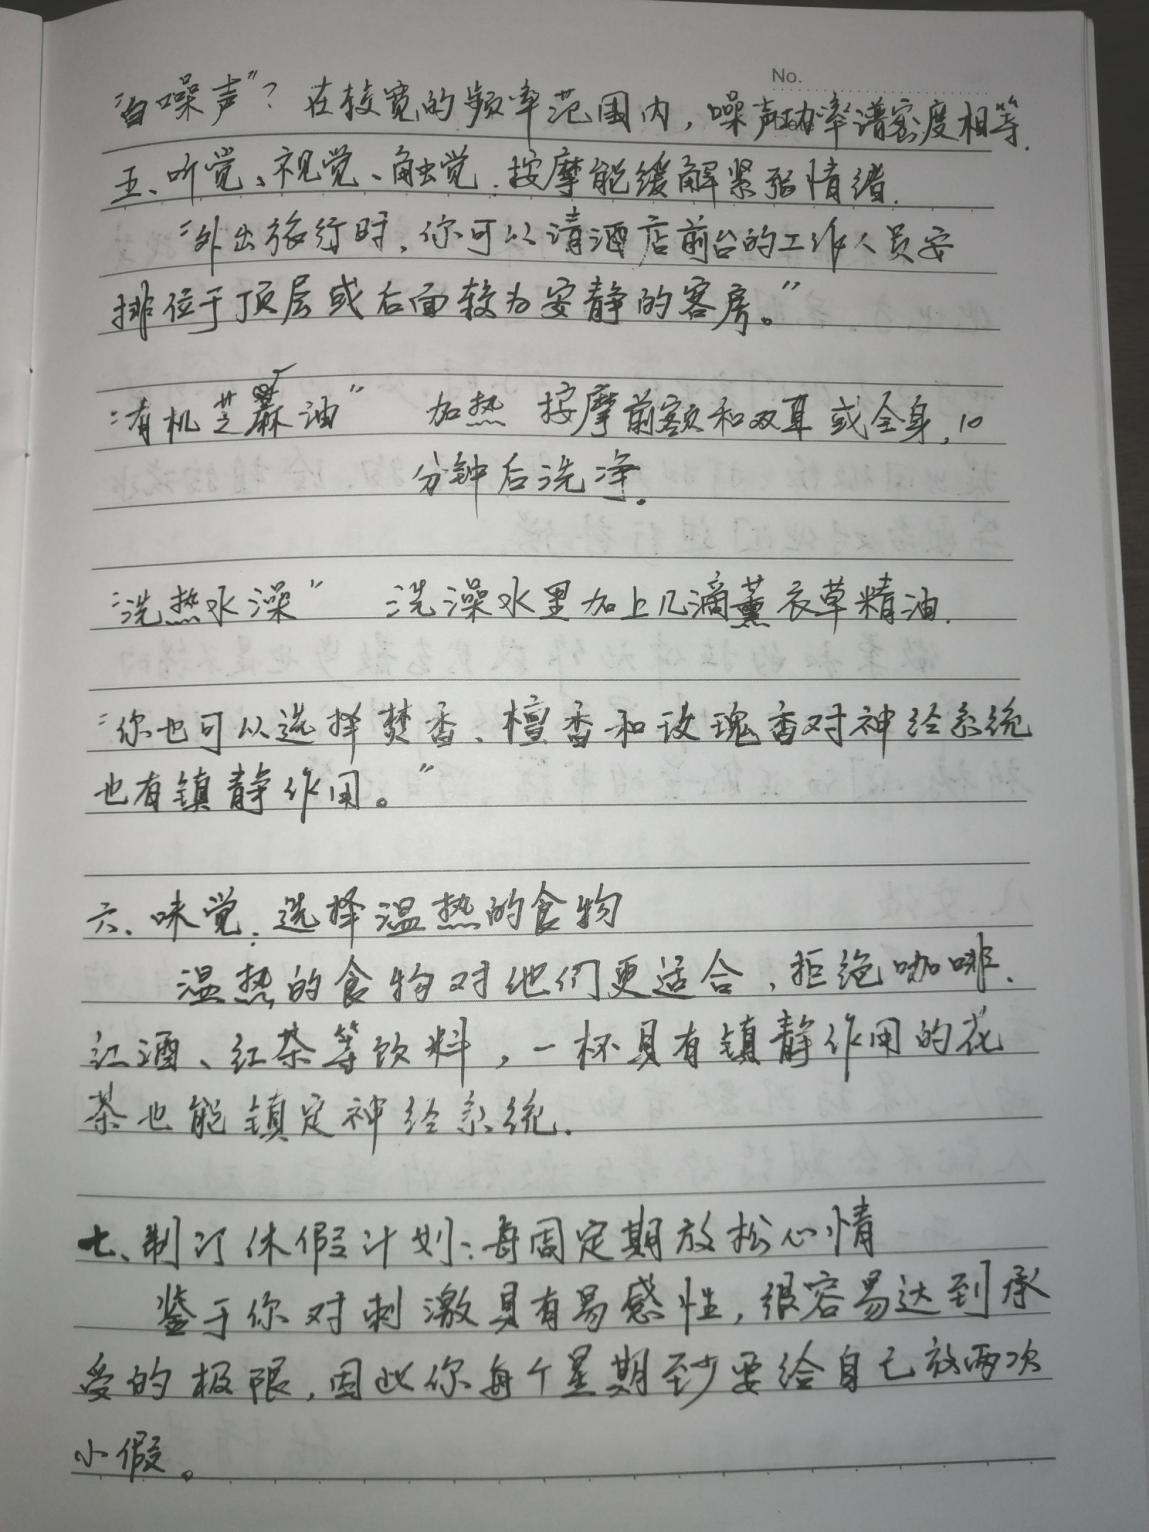 No.
“白噪声”？在较宽的频率范围内，噪声功率谱密度相等.
五、听觉、视觉、触觉.按摩能缓解紧张情绪.
“外出旅行时，你可以请酒店前台的工作人员安
排位于顶层或后面较为安静的客房。”
“有机芝麻油” 加热 按摩前额和双耳或全身，10
分钟后洗净.
“洗热水澡” 洗澡水里加上几滴薰衣草精油.
“你也可以选择焚香、檀香和玫瑰香对神经系统
也有镇静作用。”
六、味觉：选择温热的食物
温热的食物对他们更适合，拒绝咖啡、
红酒、红茶等饮料，一杯具有镇静作用的花
茶也能镇定神经系统.
七、制订休假计划：每周定期放松心情
鉴于你对刺激具有易感性，很容易达到承
受的极限，因此你每个星期至少要给自己放两次
小假。